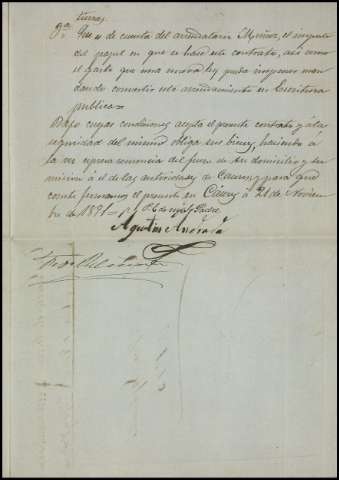 turas.
8ª Que es de cuenta del arrendatario Muñoz, el importe
del papel en que se hace este contrato, así como
el gasto que una nueva ley pueda imponer man
dando convertir este arrendamiento en Escritura
publica=
Bajo cuyas condiciones acepta el presente contrato y á la
seguridad del mismo obliga sus bienes, haciendo á
la vez espresa renuncia del fuero de su domicilio y su
mision á el de las autoridades de Cáceres, y para que
conste firmamos el presente en Cáceres á 21 de Noviem
bre de 1871=
Agustin